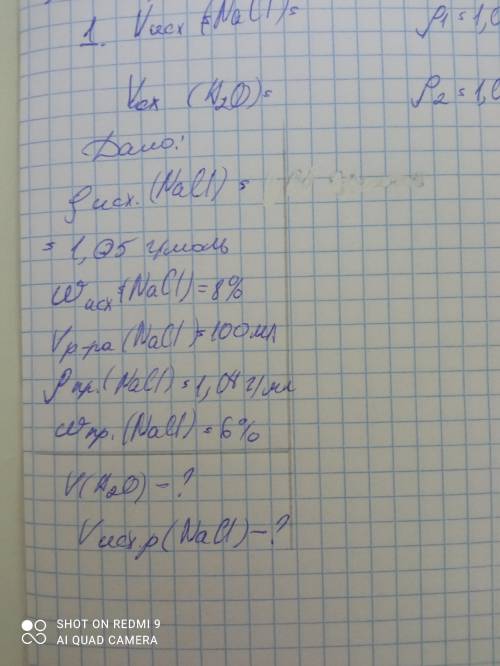 1. Vисх (NaCl)= ρ1 = 1,0
Vисх (H2O)= ρ2 = 1,0
Дано:
ρ исх. (NaCl) =
= 1,05 г/моль
ω исх (NaCl) = 8%
Vр-ра (NaCl) = 100 мл
ρ пр. (NaCl) = 1,04 г/мл
ω пр. (NaCl) = 6%
V(H2O) - ?
Vисх.р (NaCl) - ?
SHOT ON REDMI 9
AI QUAD CAMERA